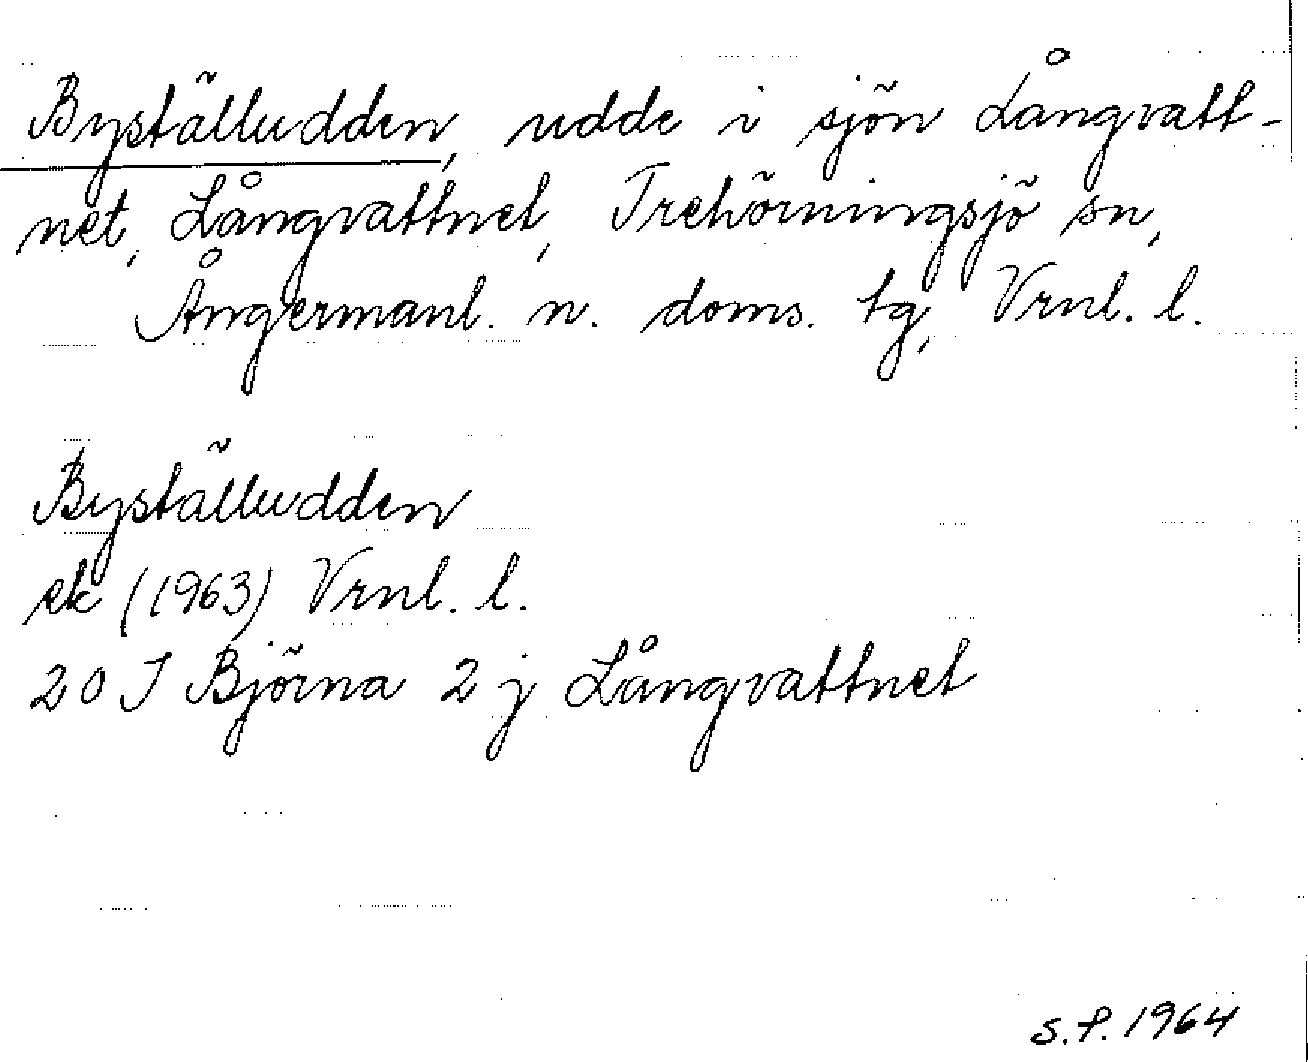 Byställudden, udde i sjön Långvatt-
net, Långvattnet, Trehörningsjö sn,
Ångermanl. n. doms. tg, Vrnl. l.
Byställudden
ek (1963) Vrnl. l.
20 J Björna 2 j Långvattnet
S.P. 1964